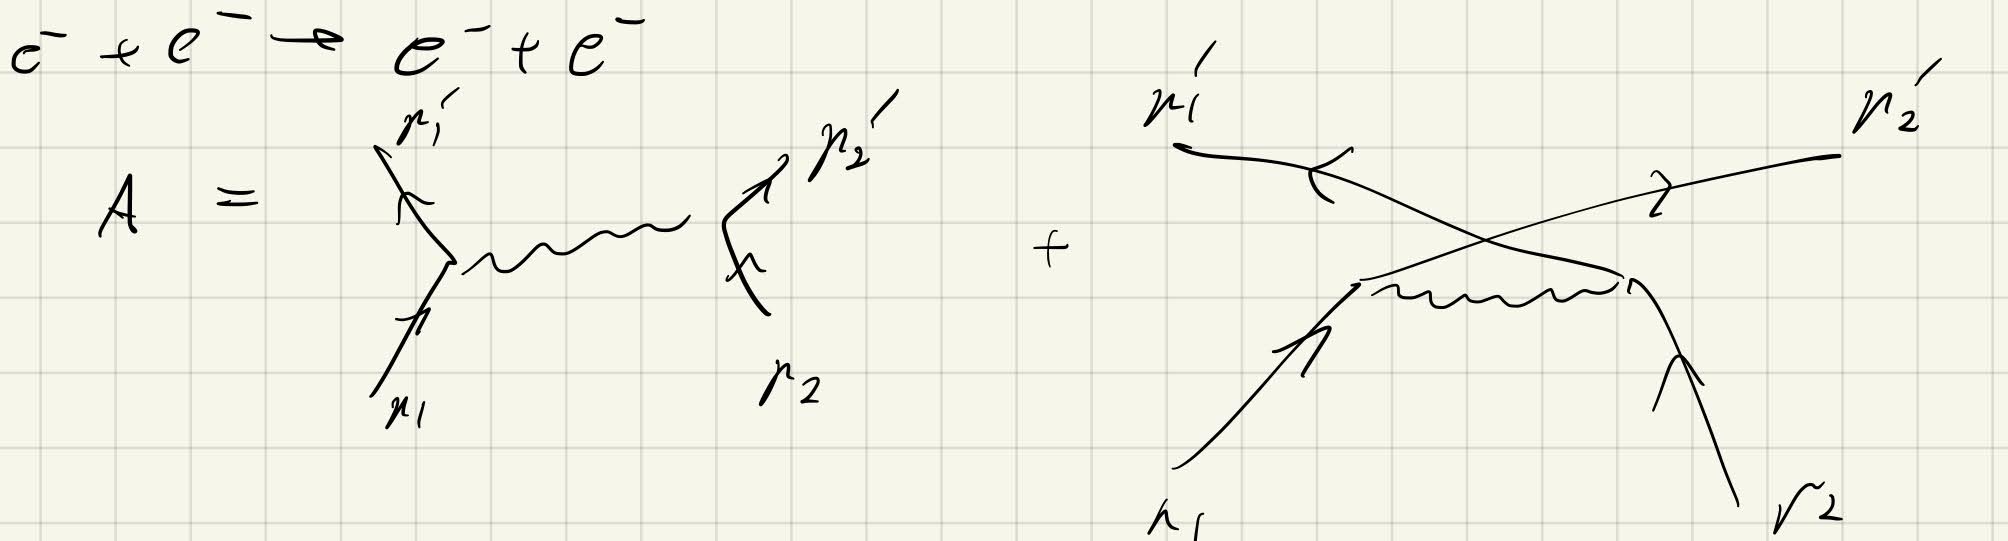 e⁻ + e⁻ → e⁻ + e⁻
p₁′ p₂′ p₁′ p₂′
A = +
p₁ p₂ p₁ p₂